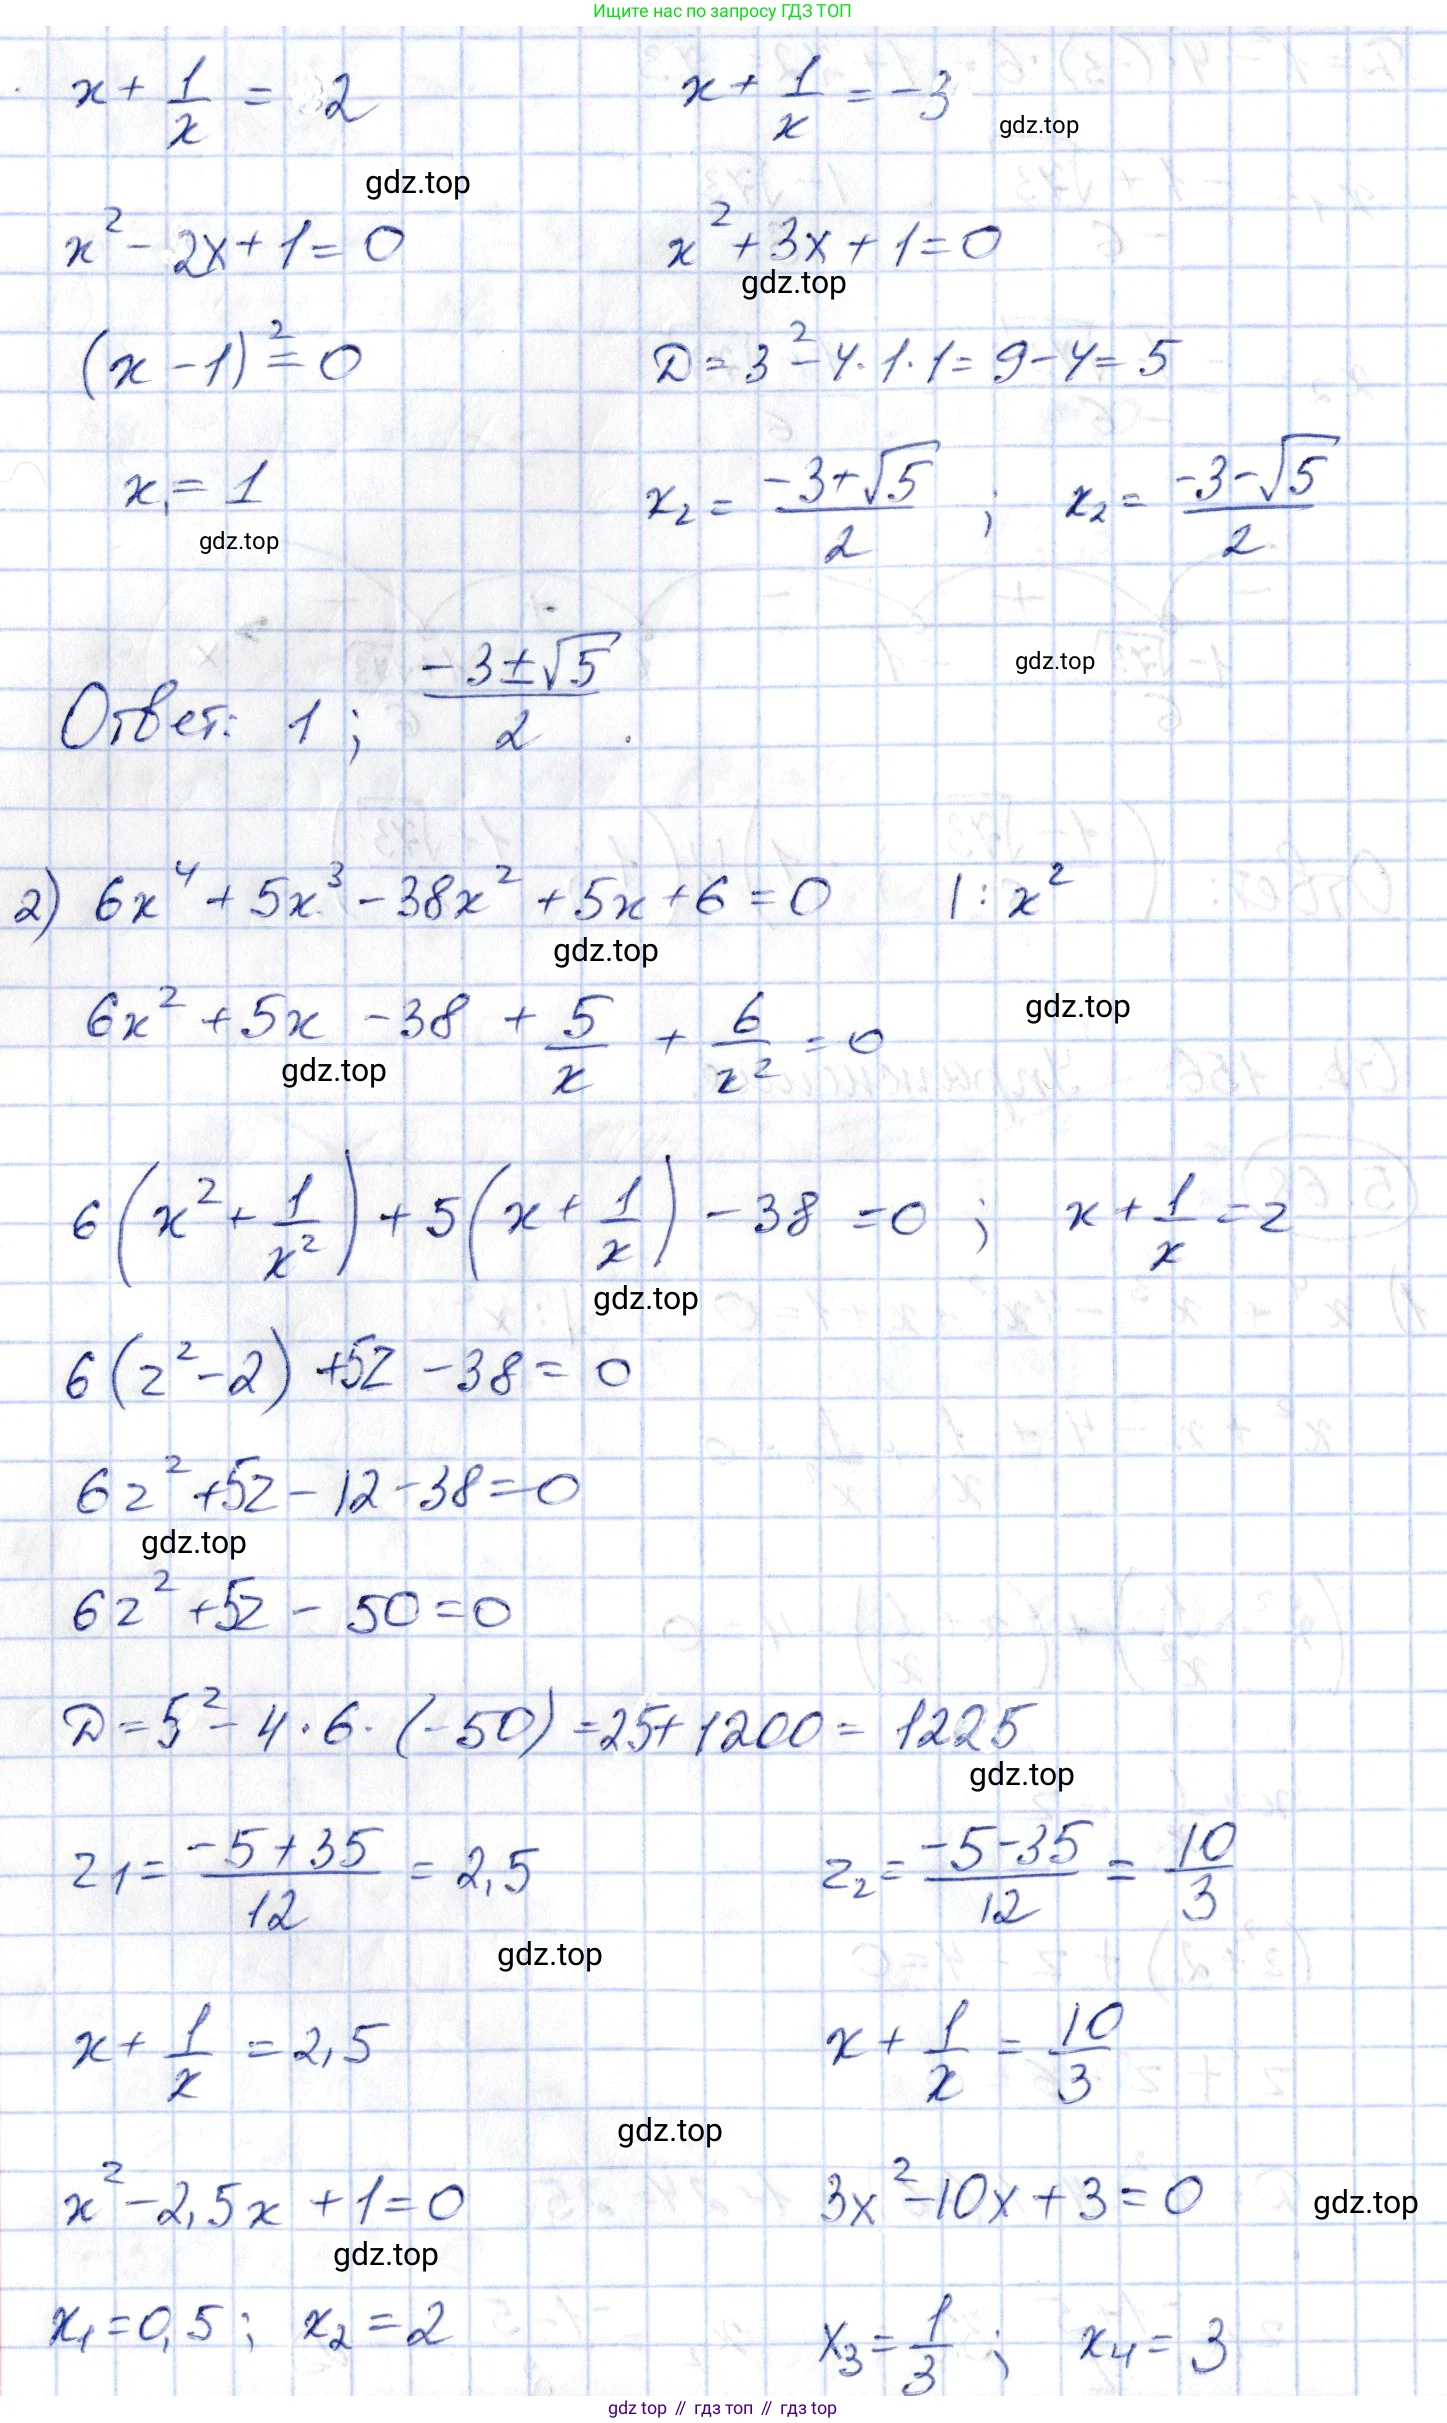 Ищите нас по запросу ГДЗ ТОП
x + 1/x = 2    x + 1/x = -3
gdz.top
gdz.top
x² - 2x + 1 = 0    x² + 3x + 1 = 0
gdz.top
(x - 1)² = 0    D = 3² - 4·1·1 = 9 - 4 = 5
x₁ = 1    x₂ = (-3+√5)/2 ; x₂ = (-3-√5)/2
gdz.top
gdz.top
Ответ: 1 ; (-3±√5)/2 .
2) 6x⁴ + 5x³ - 38x² + 5x + 6 = 0    |: x²
gdz.top
6x² + 5x - 38 + 5/x + 6/x² = 0
gdz.top
gdz.top
6(x² + 1/x²) + 5(x + 1/x) - 38 = 0 ; x + 1/x = z
gdz.top
6(z² - 2) + 5z - 38 = 0
6z² + 5z - 12 - 38 = 0
gdz.top
6z² + 5z - 50 = 0
D = 5² - 4·6·(-50) = 25 + 1200 = 1225
gdz.top
z₁ = (-5+35)/12 = 2,5    z₂ = (-5-35)/12 = 10/3
gdz.top
x + 1/x = 2,5    x + 1/x = 10/3
gdz.top
x² - 2,5x + 1 = 0    3x² - 10x + 3 = 0
gdz.top
gdz.top
x₁ = 0,5 ; x₂ = 2    x₃ = 1/3 ; x₄ = 3
gdz top // гдз топ // gdz top